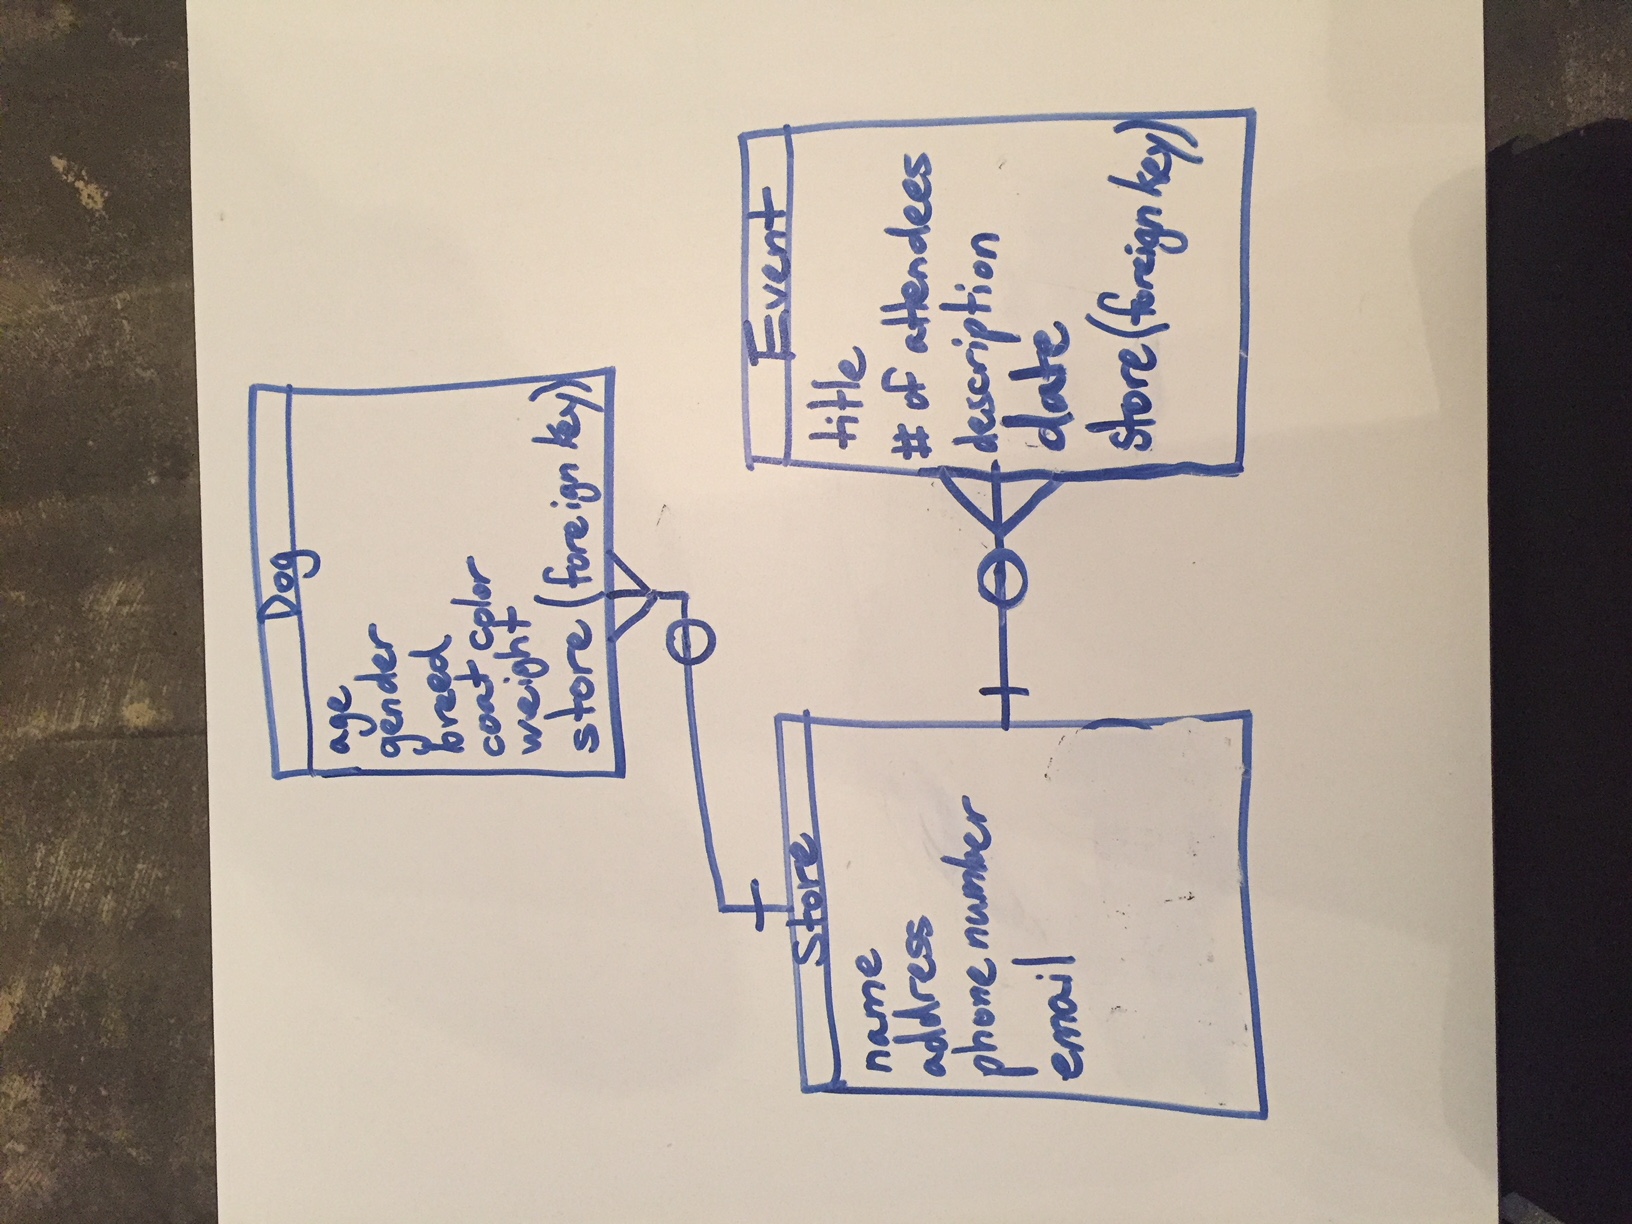 Dog
age
gender
breed
coat color
weight
store (foreign key)
Store
name
address
phone number
email
Event
title
# of attendees
description
date
store (foreign key)